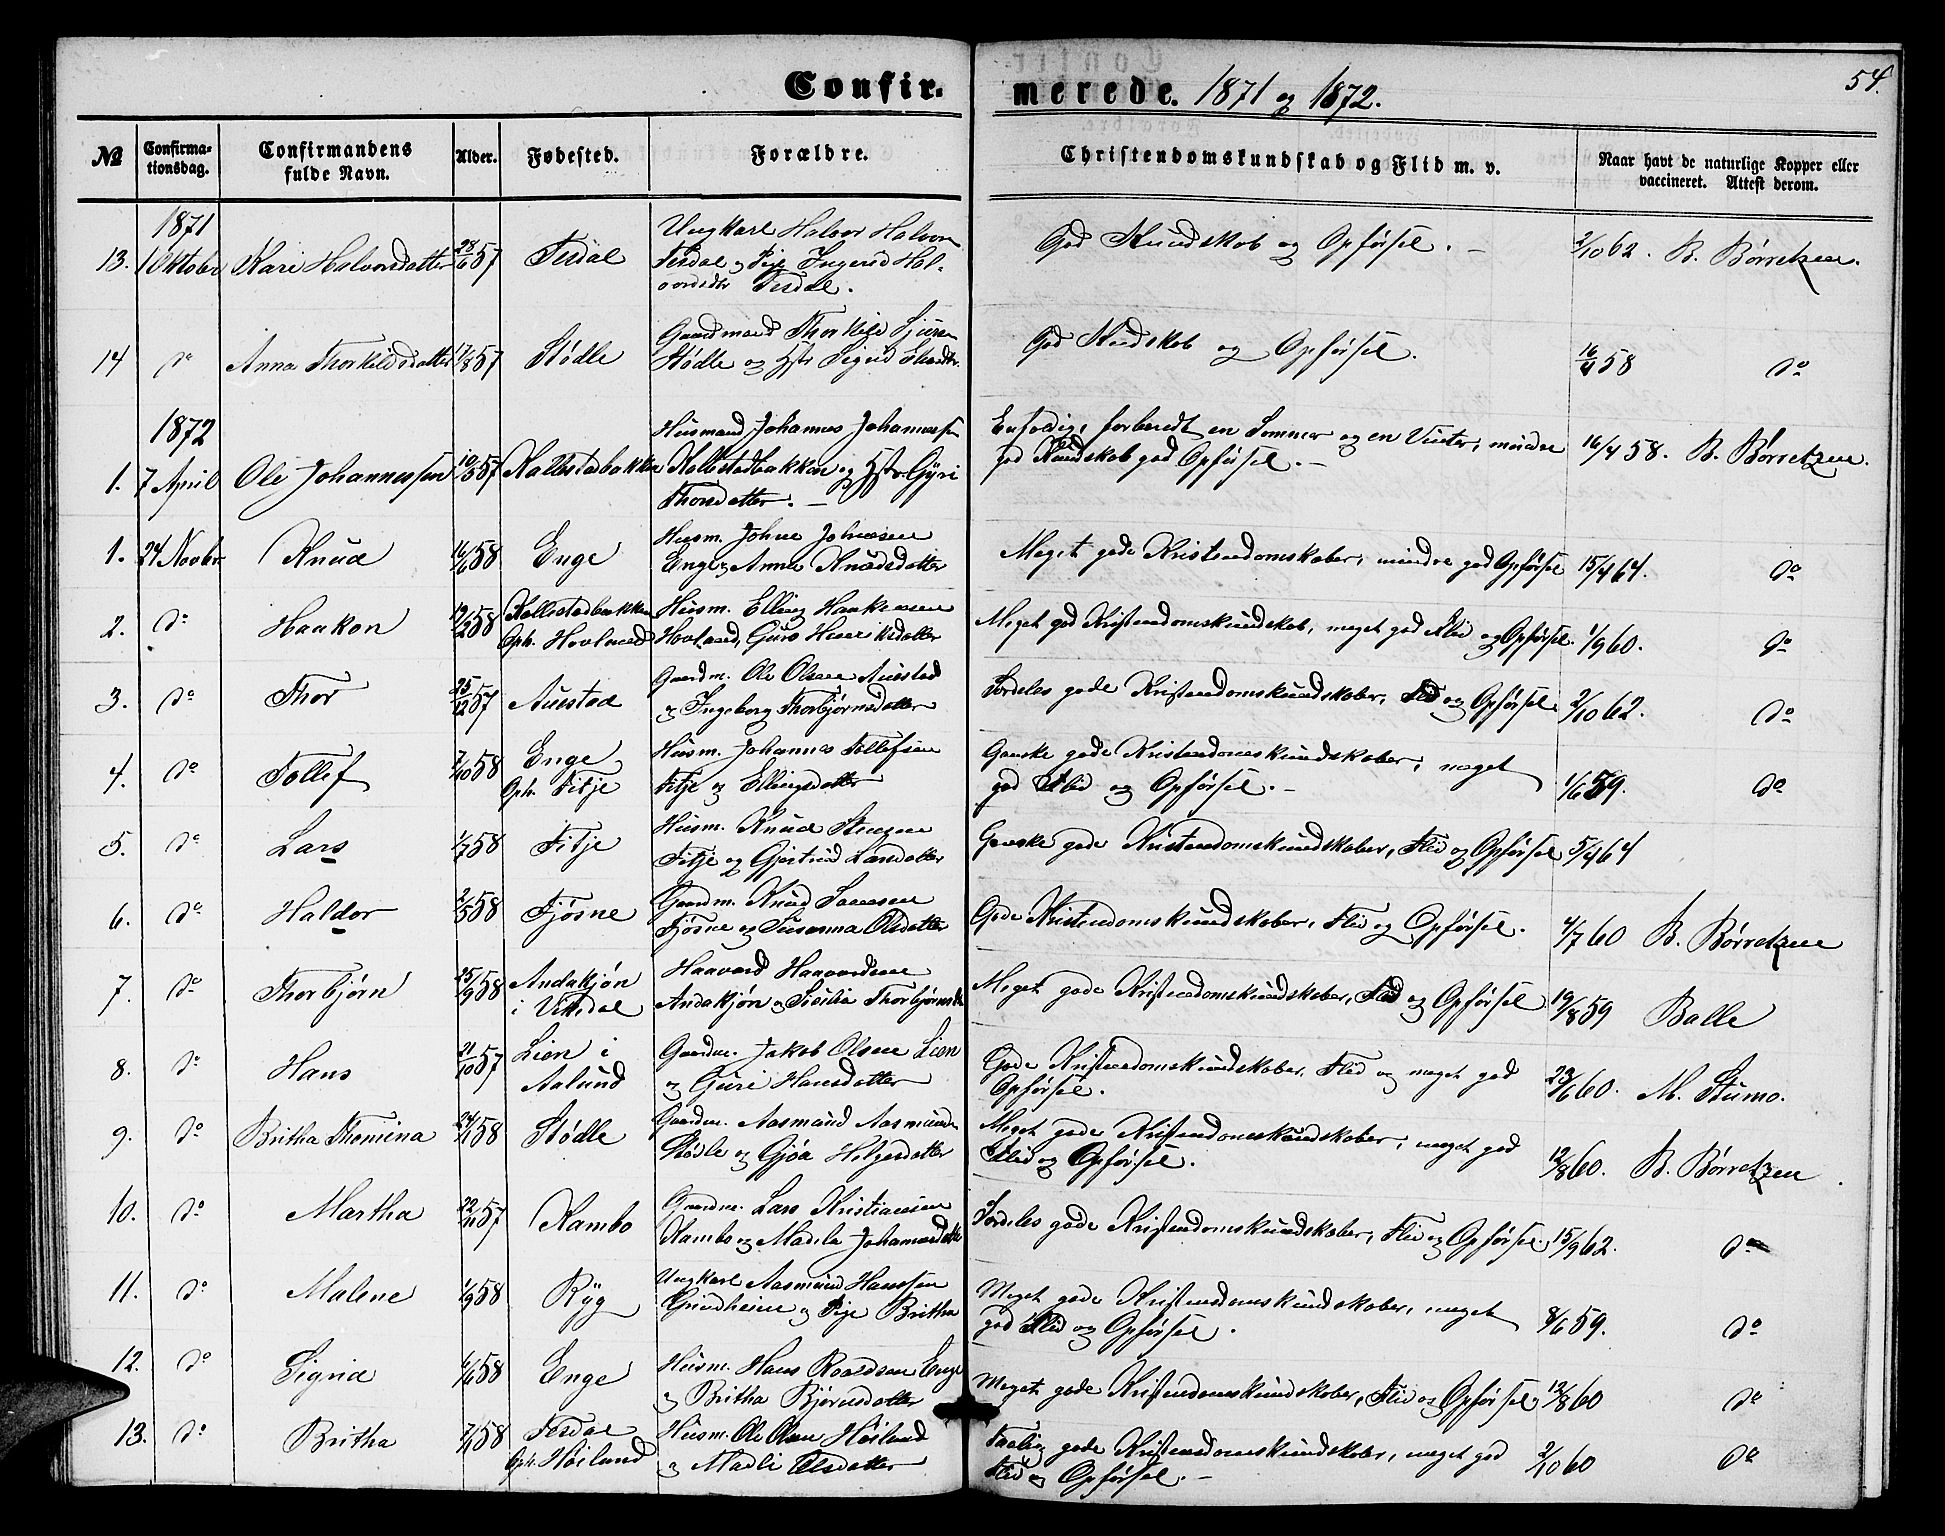 Confir-
merede. 1871 og 1872.
54.
No
Confirma-
tionsdag.
Confirmandens
fulde Navn.
Alder.
Fødested.
Forældre.
Christendomskundskab og Flid m. v.
Naar havt de naturlige Kopper eller
vaccineret. Attest derom.
1871
13. 1 Oktober Kari Halvorsdatter 28/6 57 Tesdal
Ungkarl Halvor Halvors
Tesdal og Pige Ingerid Hal-
vordsdtr Tesdal.
God Kundskab og Opførsel. - 2/10 62. B. Børretzen.
14 do Anna Thorkildsdatter 17/8 57 Stødle
Gaardmand Thorkild
Stødle og Hstr Sigrid
God Kundskab og Opførsel. 16/4 58 do
1872
1. 7 April Ole Johannessen 10/3 57 Kallestadbakken
Husmand Johannes Johannessen
Kallestadbakken og Hstr Gyri
Thorsdatter. -
Enfoldig, forberedt en Sommer og en Vinter, mindre
god Kundskab god Opførsel. - 16/4 58. B. Børretzen.
1. 24 Novbr Knud 16/6 58 Enge
Husm. Johne Johnsen
Enge og Anna Knudsdatter
Meget gode Kristendomskaber, mindre god Opførsel 15/4 64. do
2. do Haakon 19/2 58 Kallestadbakken
Oph. Hovland
Husm. Elling Haakensen
Hovland, Guro Henriksdatter
Meget god Kristendomskundskab, meget god Flid og Opførsel. 1/9 60. do
3. do Thor 25/12 57 Auestad
Gaardm. Ole Olsen Auestad
og Ingeborg Thorbjørnsdatter
Særdeles gode Kristendomskundskaber, Flid og Opførsel 2/10 62. do
4. do Tollef 7/10 58 Enge
Oph. Fitje
Husm. Johannes Tollefsen
Fitje og Ellingsdatter
Ganske gode Kristendomskundskaber, meget
god Flid og Opførsel. - 1/6 59. do
5. do Lars 1/7 58 Fitje
Husm. Knud
Fitje og Gjertrud Larsdatter
Ganske gode Kristendomskundskaber, Flid og Opførsel 5/4 64
6. do Haldor 2/5 58 Fjøsne
Gaardm. Knud
Fjøsne og Susanna Olsdatter
Gode Kristendomskundskaber, Flid og Opførsel. 4/7 60 B. Børretzen
7. do Thorbjørn 25/9 58 Andakjøn
i Vikedal
Haavard Haavardsen
Andakjøn og Sisilia Thorbjørnsd
Meget gode Kristendomskundskaber, Flid og Opførsel 19/8 59 Balle
8. do Hans 21/10 57 Lien i
Aalund
Gaardm. Jakob Olsen Lien
og Guri Hansdatter
Gode Kristendomskundskaber, Flid og meget god
Opførsel. 23/6 60. M. Stumo.
9. do Britha Thomina 24/1 58 Stødle
Gaardm. Aasmund Aasmunds
Stødle og Gjøa Helgesdatter
Meget gode Kristendomskundskaber, meget god
Flid og Opførsel. 12/8 60. B. Børretzen
10. do Martha 22/11 57 Kambo
Gaardm. Lars Kristiansen
Kambo og Madela Johannesdatt
Særdeles gode Kristendomskundskaber, Flid og Opførsel. 15/9 62. do
11. do Malene 1/9 58 Ryg
Ungkarl Aasmund Hanssen
Grindheim og Pige Britha
Meget gode Kristendomskundskaber, meget
god Flid og Opførsel. 8/6 59. do
12. do Sigrid 1/6 58 Enge
Husm. Hans Roaldsen Enge
og Britha Bjørnsdatter
Meget gode Kristendomskundskaber, Flid og Opførsel 12/8 60 do
13. do Britha 7/1 58 Tesdal
Oph. Høiland
Husm. Ole Olsen Høiland
og Madli Olsdatter
Taalig gode Kristendomskundskaber, meget god
Flid og Opførsel. - 2/10 60 do